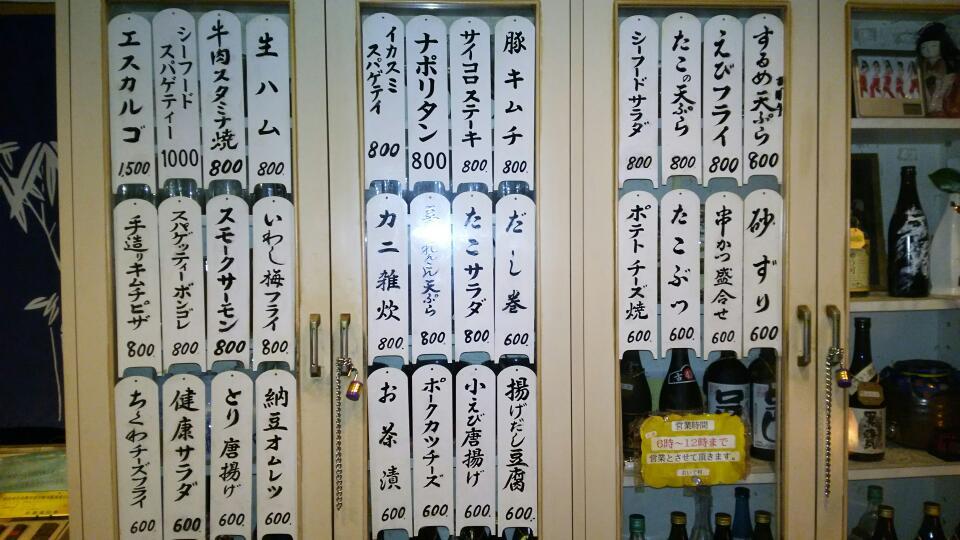 生ハム
800.
牛肉スタミナ焼
800
シーフード
スパゲティー
1000
エスカルゴ
1,500
いわし梅フライ
800.
スモークサーモン
800
スパゲッティーボンゴレ
800.
手造りキムチピザ
800.
納豆オムレツ
600.
とり唐揚げ
600.
健康サラダ
600
ちくわチーズフライ
600.
豚キムチ
800.
サイコロステーキ
800.
ナポリタン
800
イカスミ
スパゲティ
800
だし巻
600.
たこサラダ
800.
れんこん天ぷら
800.
カニ雑炊
800.
揚げだし豆腐
600.
小えび唐揚げ
600.
ポークカツチーズ
600.
お茶漬
600.
するめ天ぷら
800
えびフライ
800
たこの天ぷら
800
シーフードサラダ
800
砂ずり
600
串かつ盛合せ
600
たこぶつ
600.
ポテトチーズ焼
600.
営業時間
6時〜12時まで
営業とさせて頂きます。